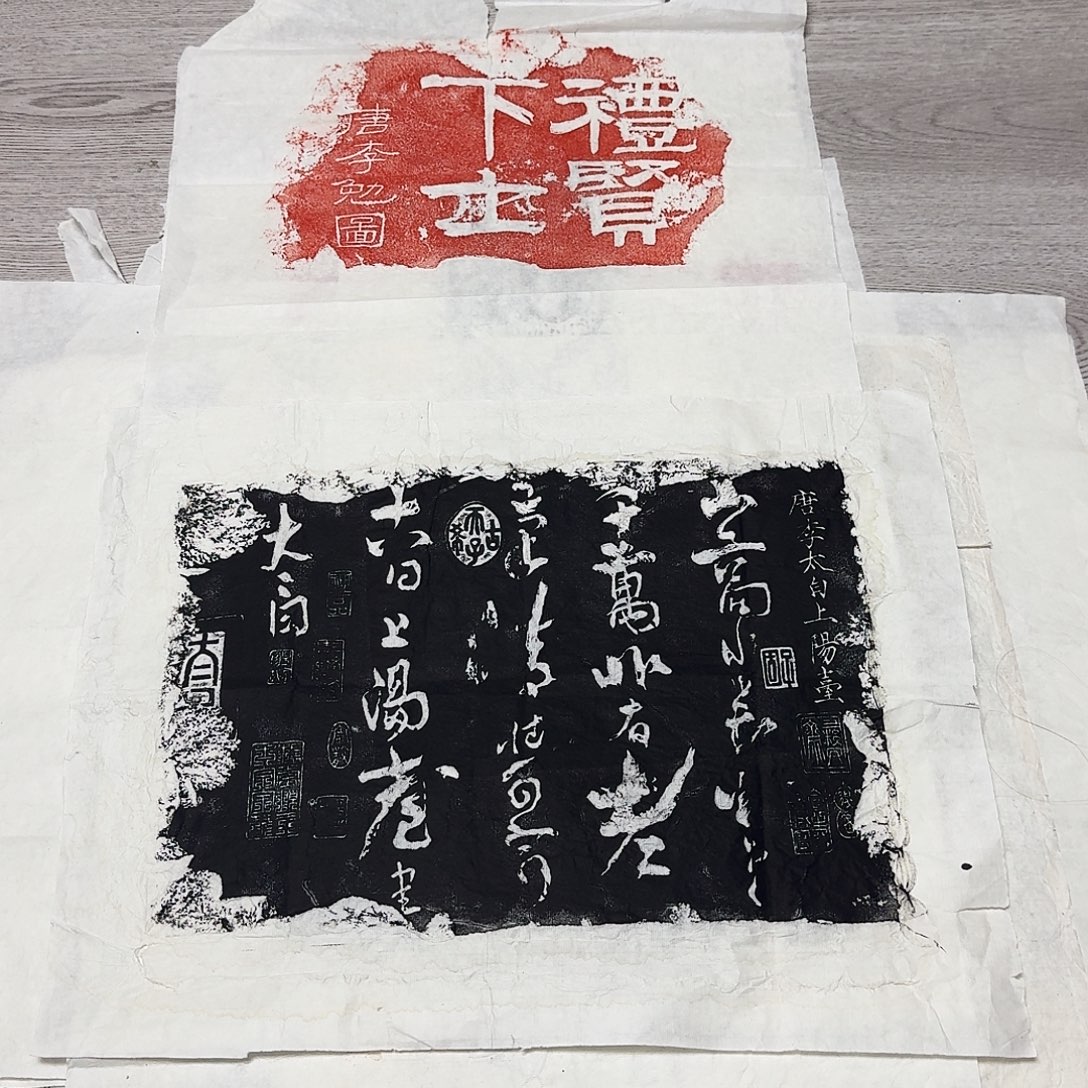 禮賢
下士
唐李勉圖
唐李太白上陽臺
山高水長物象
千萬非有老
筆清壯何窮
十八日上陽臺書
太白
古希天子